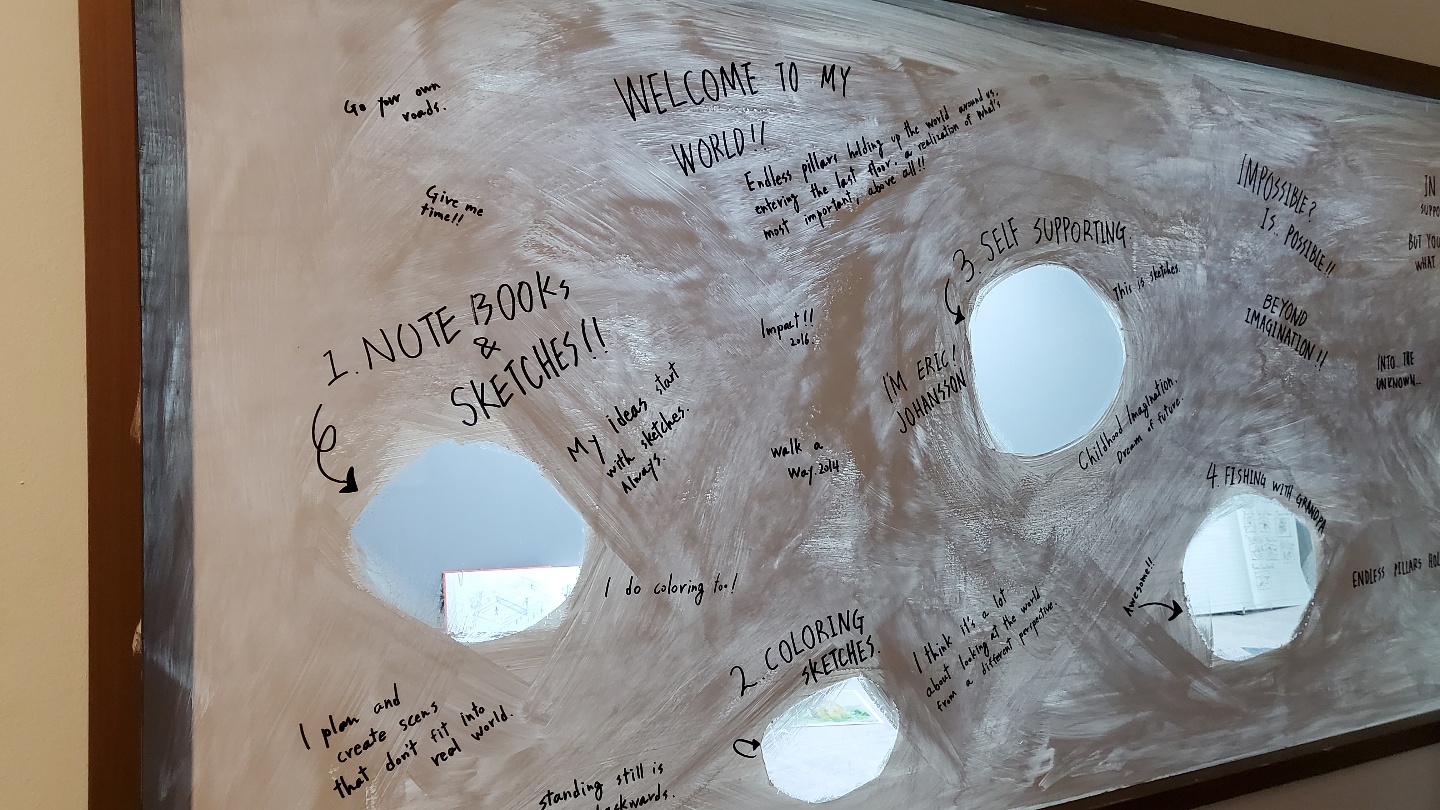 Go your own
roads.
WELCOME TO MY
WORLD!!
Endless pillars holding up the world around us,
entering the last floor, a realization of what's
most important, above all!!
Give me
time!!
1. NOTE BOOKs
&
SKETCHES!!
My ideas start
with sketches.
Always.
Impact!!
2016.
walk a
way. 2014
3. SELF SUPPORTING
This is sketches.
I'M ERIC!
JOHANSSON
Childhood Imagination.
Dream of future.
IMPOSSIBLE?
IS. POSSIBLE!!
BEYOND
IMAGINATION!!
IN
BUT YOU
WHAT
INTO THE
UNKNOWN...
4. FISHING WITH GRANDPA
Awesome!!
ENDLESS PILLARS
I do coloring too!
2. COLORING
SKETCHES.
I think it's a lot
about looking at the world
from a different perspective.
I plan and
create scens
that don't fit into
real world.
standing still is